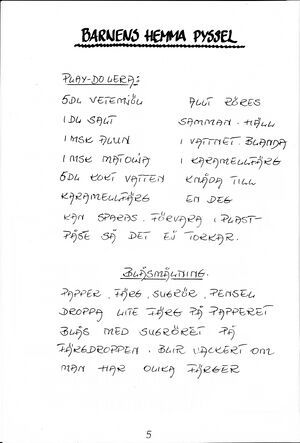 BARNENS HEMMA PYSSEL
PLAY-DO LERA:
5DL VETEMJÖL ALLT RÖRES
1DL SALT SAMMAN. HÄLL
1MSK ALUN I VATTNET. BLANDA
1MSK MATOLJA I KARAMELLFÄRG
5DL KOKT VATTEN KNÅDA TILL
KARAMELLFÄRG EN DEG
KAN SPARAS. FÖRVARA I PLAST-
PÅSE SÅ DET EJ TORKAR.
BLÅSMÅLNING.
PAPPER, FÄRG, SUGRÖR, PENSEL
DROPPA LITE FÄRG PÅ PAPPERET
BLÅS MED SUGRÖRET PÅ
FÄRGDROPPEN. BLIR VACKERT OM
MAN HAR OLIKA FÄRGER
5